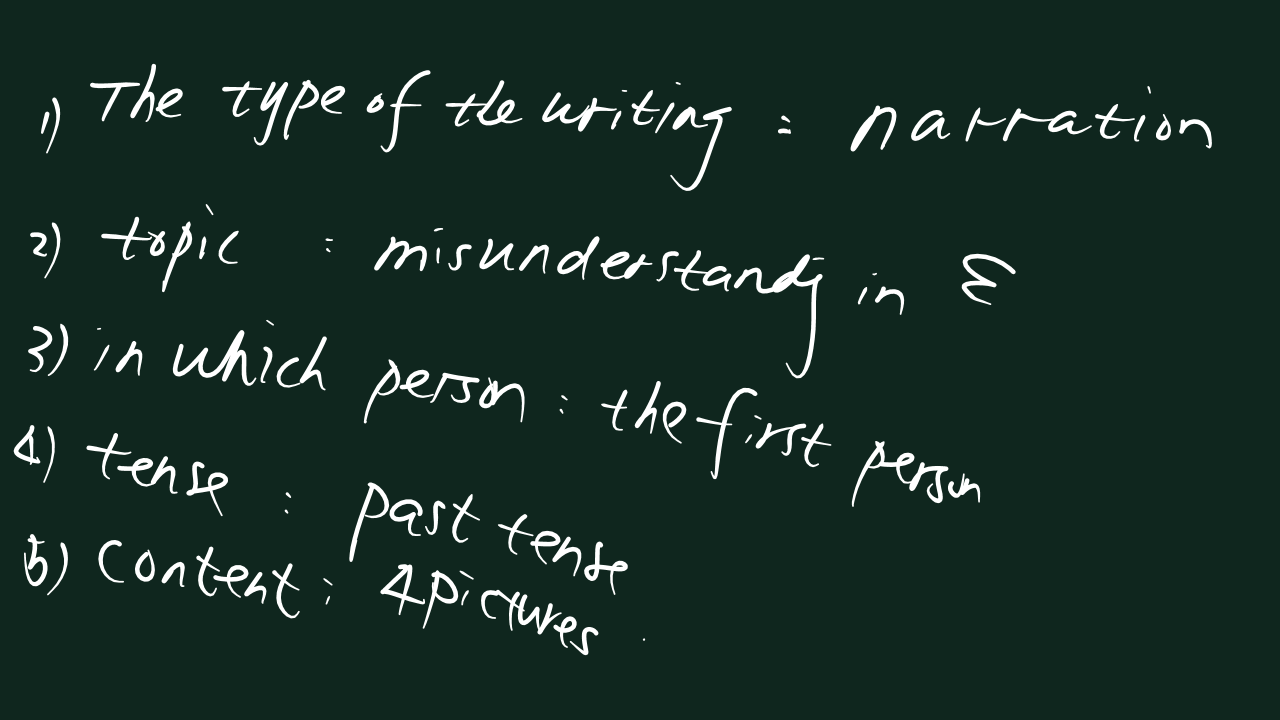 1) The type of the writing : narration
2) topic : misunderstandg in E
3) in which person : the first person
4) tense : past tense
5) Content : 4 pictures